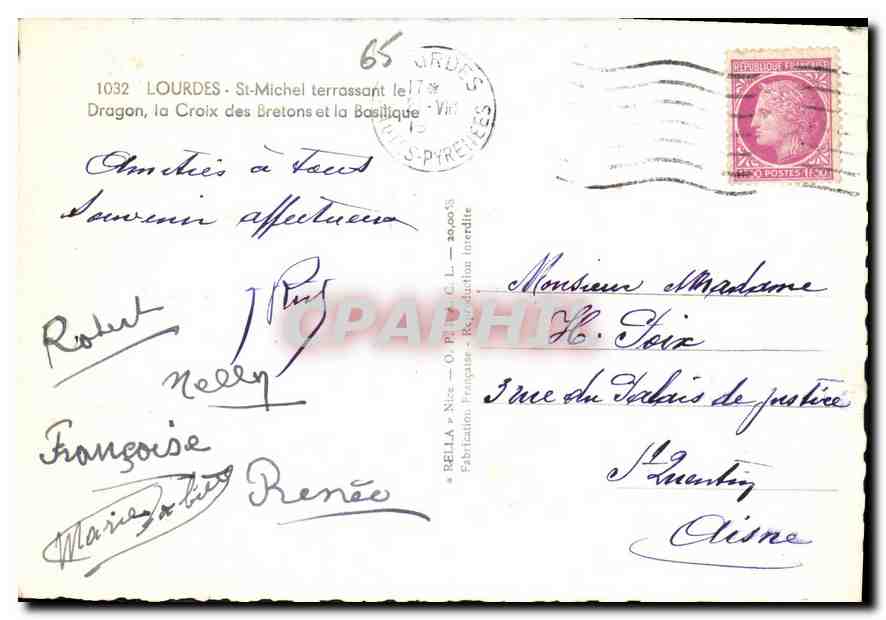 65
1032 LOURDES - St-Michel terrassant le
Dragon, la Croix des Bretons et la Basilique
LOURDES
17
RÉPUBLIQUE FRANÇAISE
POSTES 1F50
Amitiés à tous
Souvenir affectueux
Robert
Nelly
Françoise
Renée
Marie
CPAPHIL
« RELLA » Nice — O. P.
C. L. — 20,0058
Fabrication Française - Reproduction interdite
Monsieur Madame
H. Foix
3 rue du Palais de Justice
St Quentin
Aisne